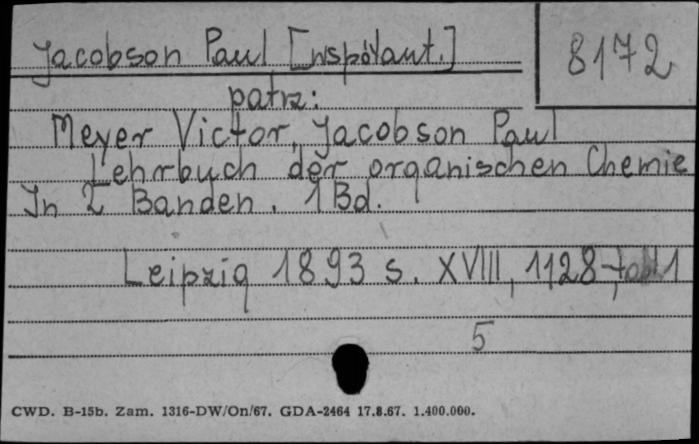 Jacobson Paul [współaut.]
8172
patrz:
Meyer Victor, Jacobson Paul
Lehrbuch der organischen Chemie
In 2 Banden. 1 Bd.
Leipzig 1893 s. XVIII, 1128, 1
5
CWD. B-15b. Zam. 1316-DW/On/67. GDA-2464 17.8.67. 1.400.000.